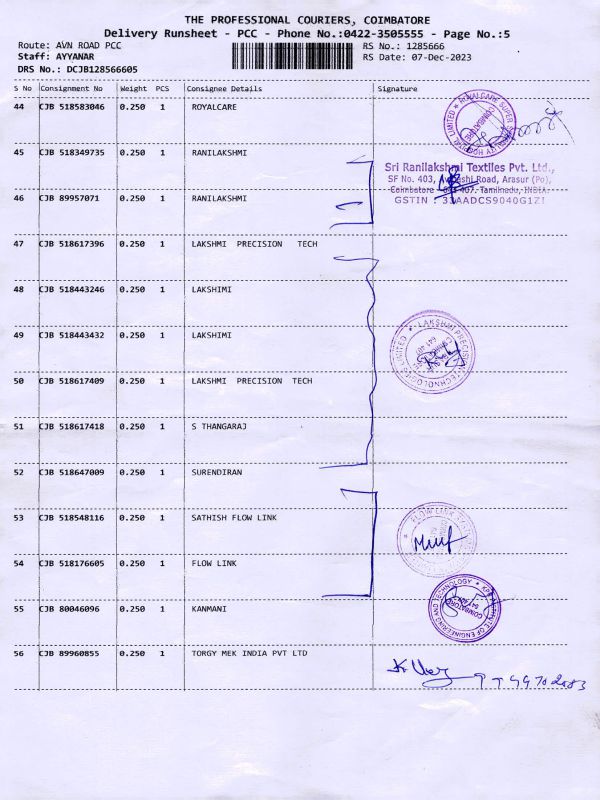 THE PROFESSIONAL COURIERS, COIMBATORE
Delivery Runsheet - PCC - Phone No.:0422-3505555 - Page No.:5
Route: AVN ROAD PCC RS No.: 1285666
Staff: AYYANAR RS Date: 07-Dec-2023
DRS No.: DCJB128566605
S No Consignment No Weight PCS Consignee Details Signature
44 CJB 518583046 0.250 1 ROYALCARE
ROYALCARE SUPER
45 CJB 518349735 0.250 1 RANILAKSHMI
Sri Ranilakshmi Textiles Pvt. Ltd.,
SF No. 403, Road, Arasur (Po),
Coimbatore 407. Tamilnadu, INDIA.
GSTIN : 33AADCS9040G1ZI
46 CJB 89957071 0.250 1 RANILAKSHMI
47 CJB 518617396 0.250 1 LAKSHMI PRECISION TECH
48 CJB 518443246 0.250 1 LAKSHIMI
49 CJB 518443432 0.250 1 LAKSHIMI
LAKSHMI PRECISION TECHNOLOGIES LIMITED
50 CJB 518617409 0.250 1 LAKSHMI PRECISION TECH
51 CJB 518617418 0.250 1 S THANGARAJ
52 CJB 518647009 0.250 1 SURENDIRAN
53 CJB 518548116 0.250 1 SATHISH FLOW LINK
FLOW LINK
54 CJB 518176605 0.250 1 FLOW LINK
55 CJB 80046096 0.250 1 KANMANI
KPR INSTITUTE OF ENGINEERING AND TECHNOLOGY
COIMBATORE
56 CJB 89960855 0.250 1 TORGY MEK INDIA PVT LTD